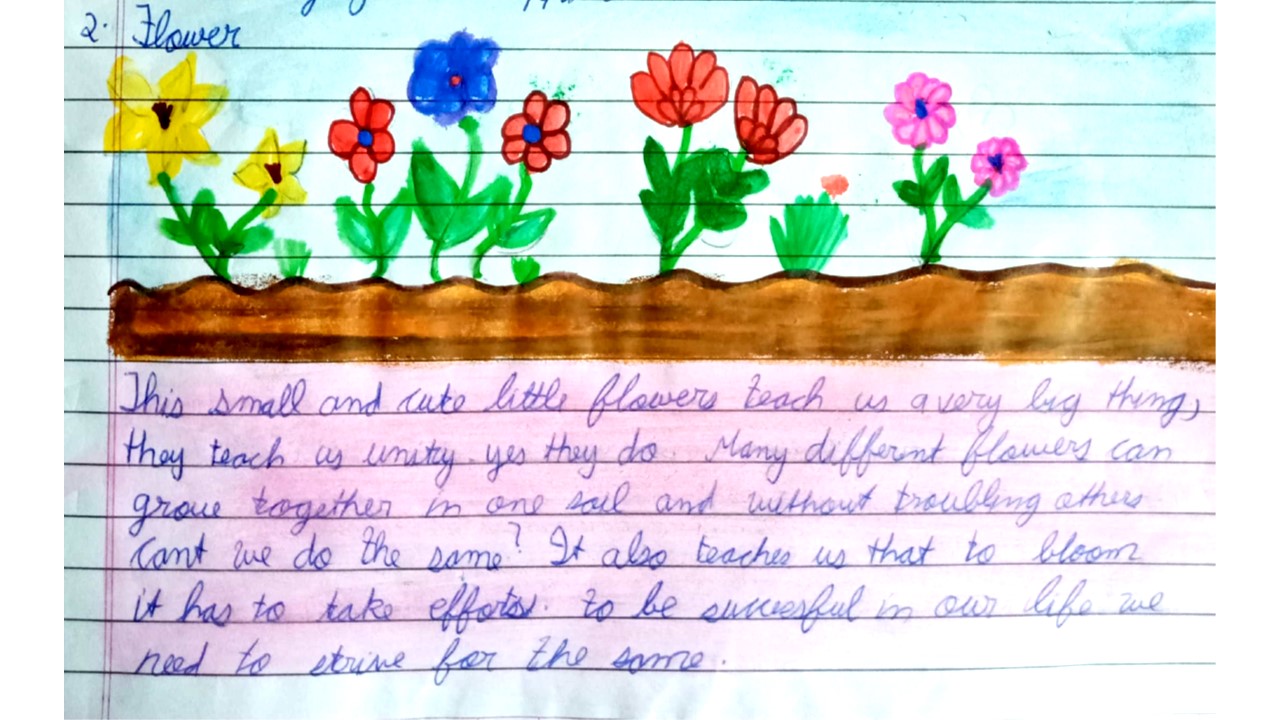 2. Flower
This small and cute little flowers teach us a very big thing,
they teach us unity yes they do. Many different flowers can
grow together in one soil and without troubling others
cant we do the same? It also teaches us that to bloom
it has to take efforts. to be succesful in our life we
need to strive for the same.